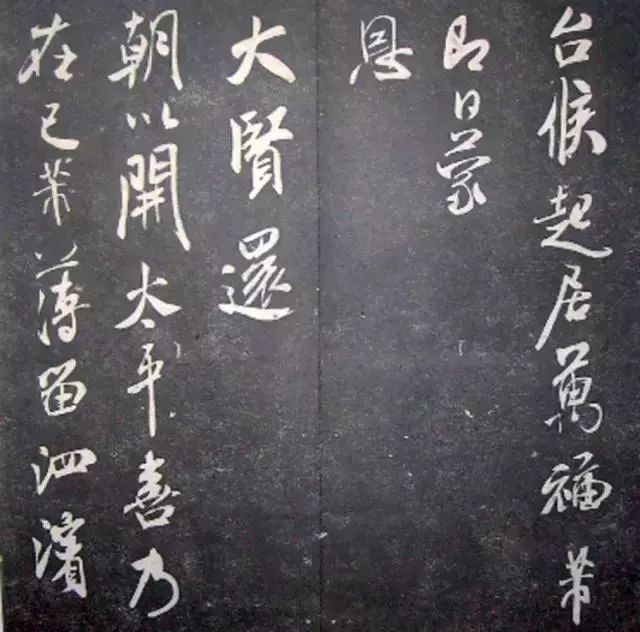 台候起居萬福芾
即日蒙
恩
大賢還
朝以開太平喜乃
在已芾薄留泗濱